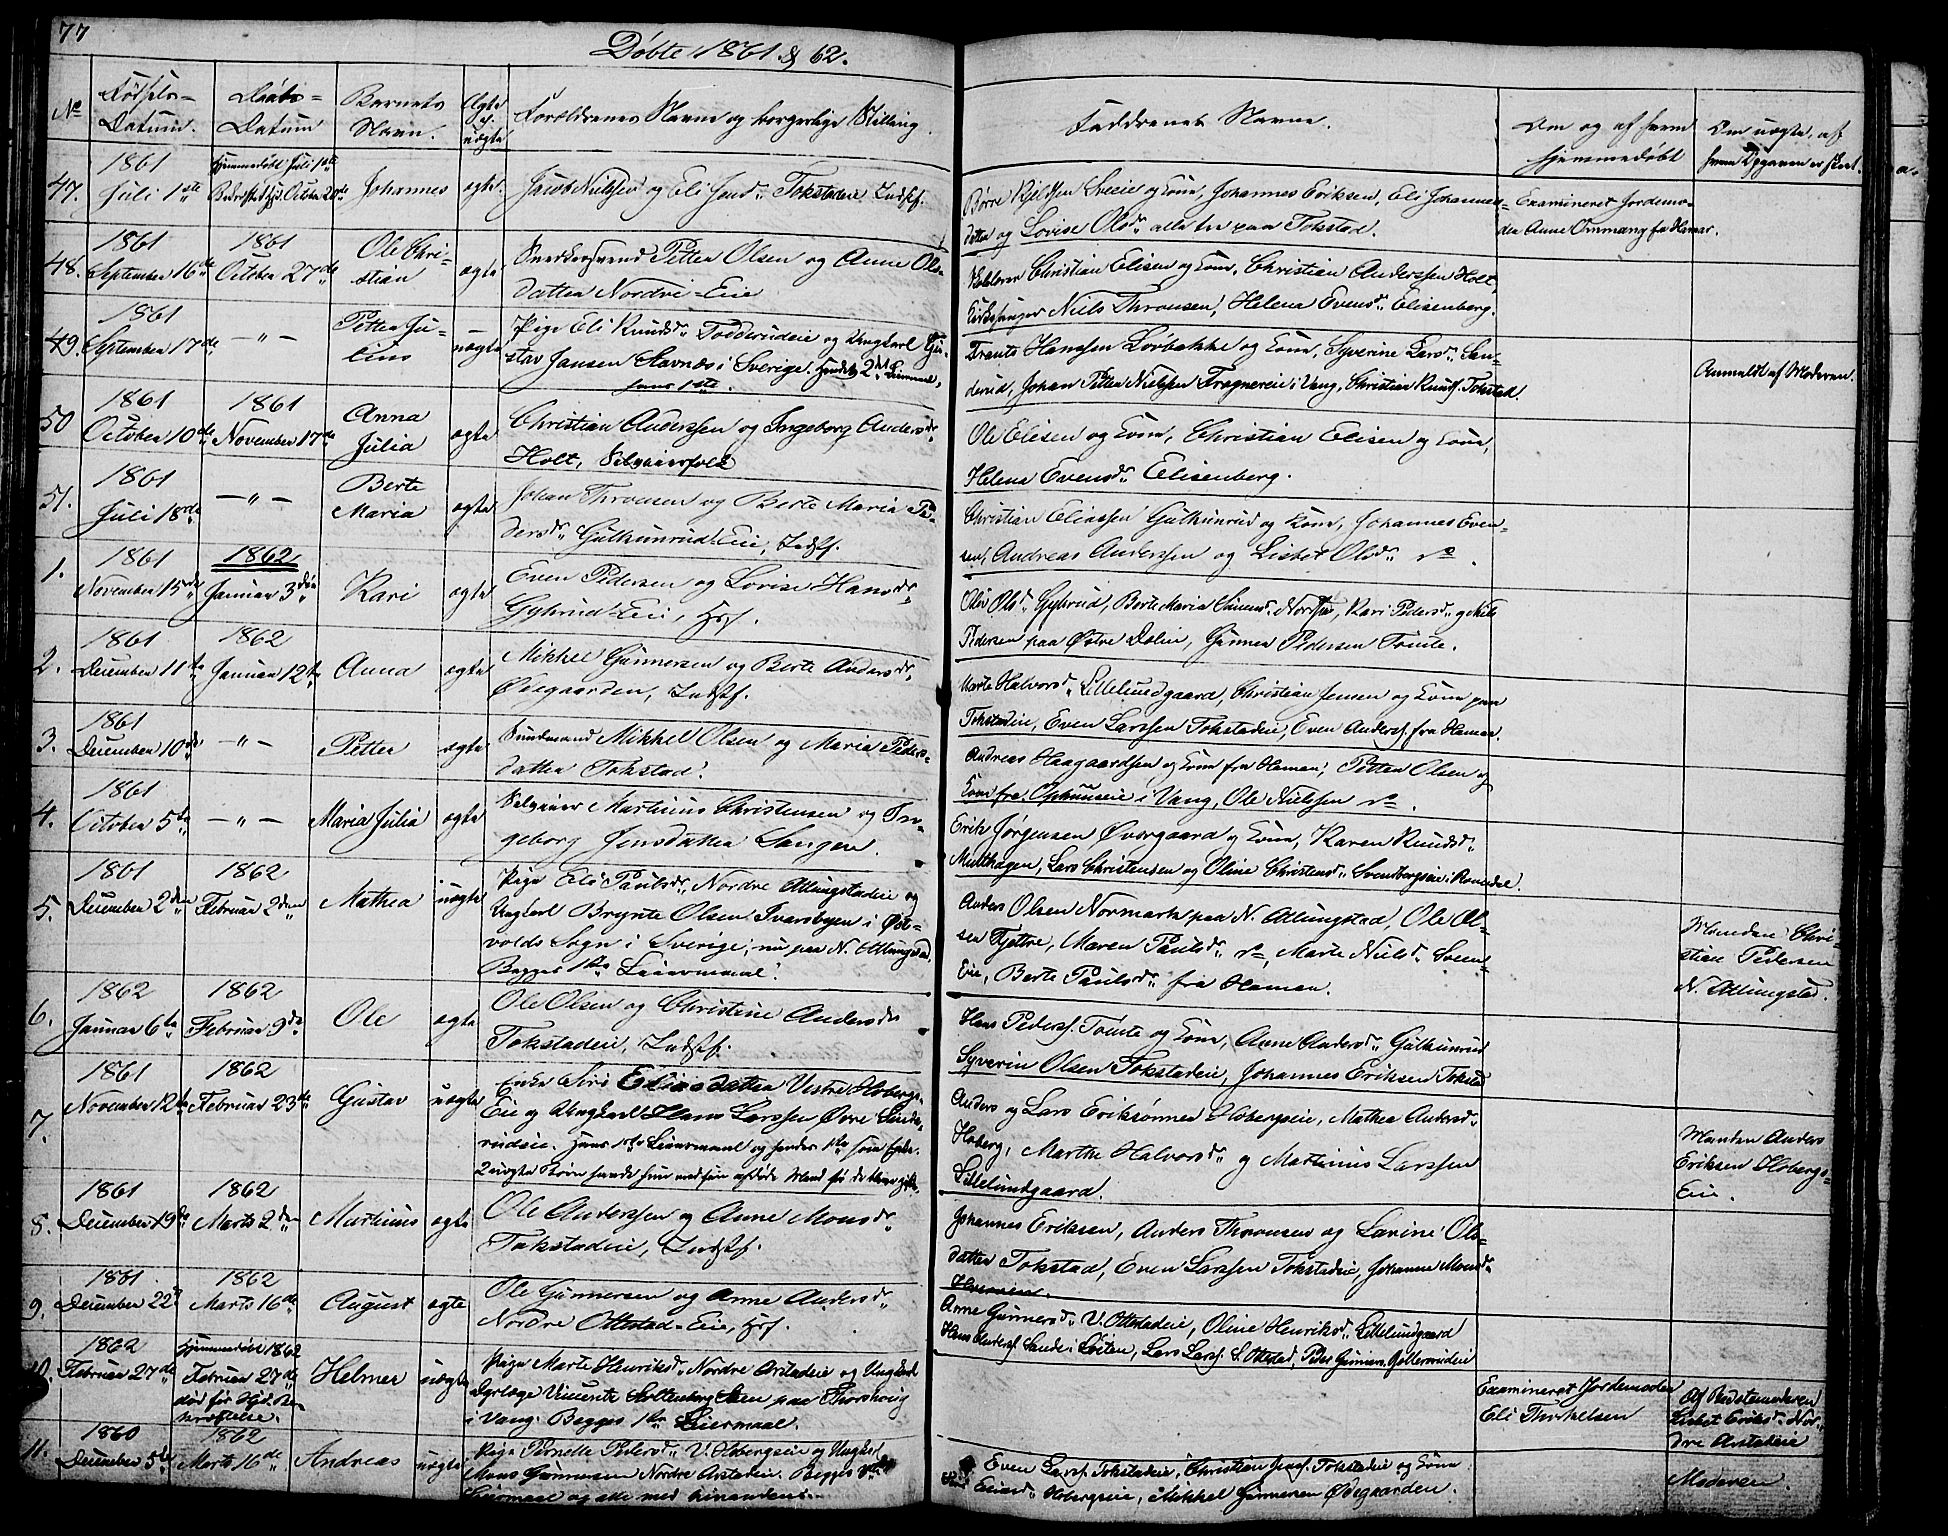 77
Døbte 1861 & 62.
No
Fødsels-
Datum.
Daabs-
Datum
Barnets
Navn.
Ægte
uægte
Forældrenes Navne og borgerlige Stilling.
Faddrenes Navne.
Om og af hvem
hjemmedøbt
Om uægte, af
hvem Opgaven er skeet.
47.
1861
Juli 1ste
Hjemmedøbt Juli 1ste
October 20de
Johannes
ægte.
Jacob Nielsen og Eli Jensdr Tokstadeie Indsf.
Børre Kjeldsen Sveeie og Kone, Johannes Eriksen, Eli Johannes-
datter og Lovise Olsdr alle tre paa Tokstad.
Examineret Jordemo-
der Anne Ommang fra Hamar.
48.
1861
September 16de
1861
October 27de
Ole Chri-
stian
ægte
Snedkersvend Petter Olsen og Anne Ols-
datter Nordvi-Eie
Christian Elisen og Kone, Christian Anderssen Holt,
Kirkesanger Niels Thronsen, Helena Evensdr Elisenberg.
49.
1861
September 17de
—"—
Petter Ju-
lius
uægte
Pige Eli Knudsdr Todderudeie og Ungkarl Gu-
stav Jansen Stavnæs i Sverige. Hendes 2det Leiermaal,
hans 1ste.
Frants Hanssen Lørbakke og Kone, Syverine Larsdr San-
derud, Johan Petter Nielsen Fragnereie i Vang, Christian Knuds. Tokstad.
Anmeldt af Moderen.
50
1861
October 10de
1861
November 17de
Anna
Julia
ægte
Christian Anderssen og Ingeborg Andersdr
Holt, Selveierfolk
Ole Elisen og Kone, Christian Elisen og Kone,
Helena Evensdr Elisenberg.
51.
1861
Juli 18de
—"—
Berte
Maria
ægte
Johan Thronsen og Berte Maria Pe-
dersdr Gulkunrud-Eie, Indsf.
Christian Eliassen Gulkunrud og Kone, Johannes Even-
sen, Andreas Anderssen og Lisbet Olsdr do.
1.
1861
November 15de
1862
Januar 3die
Kari
ægte
Even Pedersen og Lovise Hansdr
Gyhrud-Eie, Hsf.
Olea Olsdr Gyhrud, Berte Maria Simensdr Nordvi, Kari Pedersdr og Nils
Pedersen paa Østre Dølin, Gunner Pedersen Tomte.
2.
1861
December 11te
1862
Januar 12te
Anna
ægte
Mikkel Gunnersen og Berte Andersdr
Ødegaarden, Indsf.
Marte Halvorsdr Lillelundgaard, Christian Jensen og Kone paa
Tokstadeie, Even Larssen Tokstadeie, Even Anders. fra Hamar.
3.
1861
December 10de
—"—
Petter
ægte
Mikkel Olsen og Maria Peders-
datter Tokstad.
Andreas Haagaardsen og Kone fra Hamar, Petter Olsen og
Kone fra Ophuuseie i Vang, Ole Nielsen do.
4.
1861
October 5te
—"—
Maria Julia
ægte
Selveier Martinus Christensen og In-
geborg Jensdatter Sangen.
Erik Jørgensen Øvergaard og Kone, Karen Knudsdr
Multhagen, Lars Christensen og Oline Christensdr Svenbergeie i Romedal.
5.
1861
December 2den
1862
Februar 2den
Mathea
uægte
Pige Eli Paulsdr Nordre Attungstadeie og
Ungkarl Brynte Olsen Ivarsbyen i Øst-
volds Sogn i Sverige, nu paa N. Attungstad.
Begges 1ste Leiermaal.
Anders Olsen Normark paa N. Attungstad, Ole Ol-
sen Tjettre, Maren Paulsdr do, Marte Nielsdr Sveen-
Eie, Berte Paulsdr fra Hamar.
Manden Chri-
stian Pedersen
N. Attungstad.
6.
1862
Januar 6te
1862
Februar 9de
Ole
ægte
Ole Olsen og Christine Andersdr
Tokstadeie, Indsf.
Hans Peders. Tomte og Kone, Anne Andersdr Gulkunrud
Syverin Olsen Tokstadeie, Johannes Eriksen Tokstad
7.
1861
November 12te
1862
Februar 23de
Gustav
uægte
Enke Siri Eliasdatter Vestre Hobergs-
Eie og Ungkarl Hans Larssen Øvre Sande-
rudeie. Hans 1ste Leiermaal og hendes 1ste som Enke.
2 uægte Børn havde hun med sin afdøde Mand før de bleve gifte.
Anders og Lars Eriksønner Hobergseie, Mathea Andersdr
Hoberg, Marthe Halvorsdr og Martinus Larssen
Lillelundgaard.
Manden Anders
Eriksen Hobergs-
Eie.
8.
1861
December 19de
1862
Marts 2den
Martinus
ægte
Ole Anderssen og Anne Monsdr
Tokstadeie, Indsf.
Johannes Eriksen, Anders Thronsen og Lavine Ols-
datter Tokstad, Even Larssen Tokstadeie, Johanne Monsdr
9.
1861
December 22
1862
Marts 16de
August
ægte
Ole Gunnersen og Anne Andersdr
Nordre Ottestad-Eie, Hsf.
Anne Gunnersdr V. Ottestadeie, Oline Henriksdr Lillelundgaard
Hans Anders. Sande i Løiten, Lars Lars. S. Ottestad, Peder Gunners.
10.
1862
Februar 27de
Hjemmedøbt 1862
Februar 27de
død før
Helmer
uægte
Pige Marte Henriksdr Nordre Arstadeie og Ungkarl
Dyrlæge Vincente Soltenberg Steen paa Thorshoug
i Vang. Begges 1ste Leiermaal.
Examineret Jordemoder
Eli Thorkelsen
Af Bedstemoderen
Lisbet Eriksdr Nor-
dre Arstadeie
11.
1860
December 5te
1862
Marts 16de
Andreas
uægte
Pige Pernelle Pedersdr V. Hobergseie og Ungkarl
Mons Gunnersen Nordre Arstadeie. Begges
Leiermaal og alle med hinanden.
Even Lars. Tokstadeie, Christian Jens. Tokstadeie og Kone
Hobergseie, Mikkel Gunnersen Ødegaarden.
Moderen.